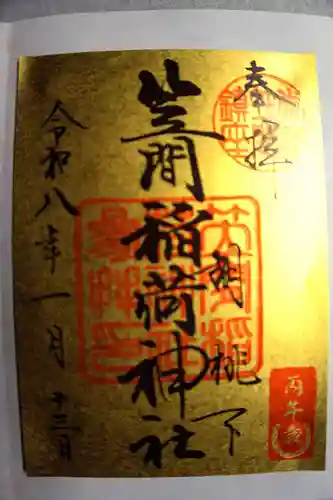 奉拝
胡桃下
笠間稲荷神社
令和八年一月十三日
丙午